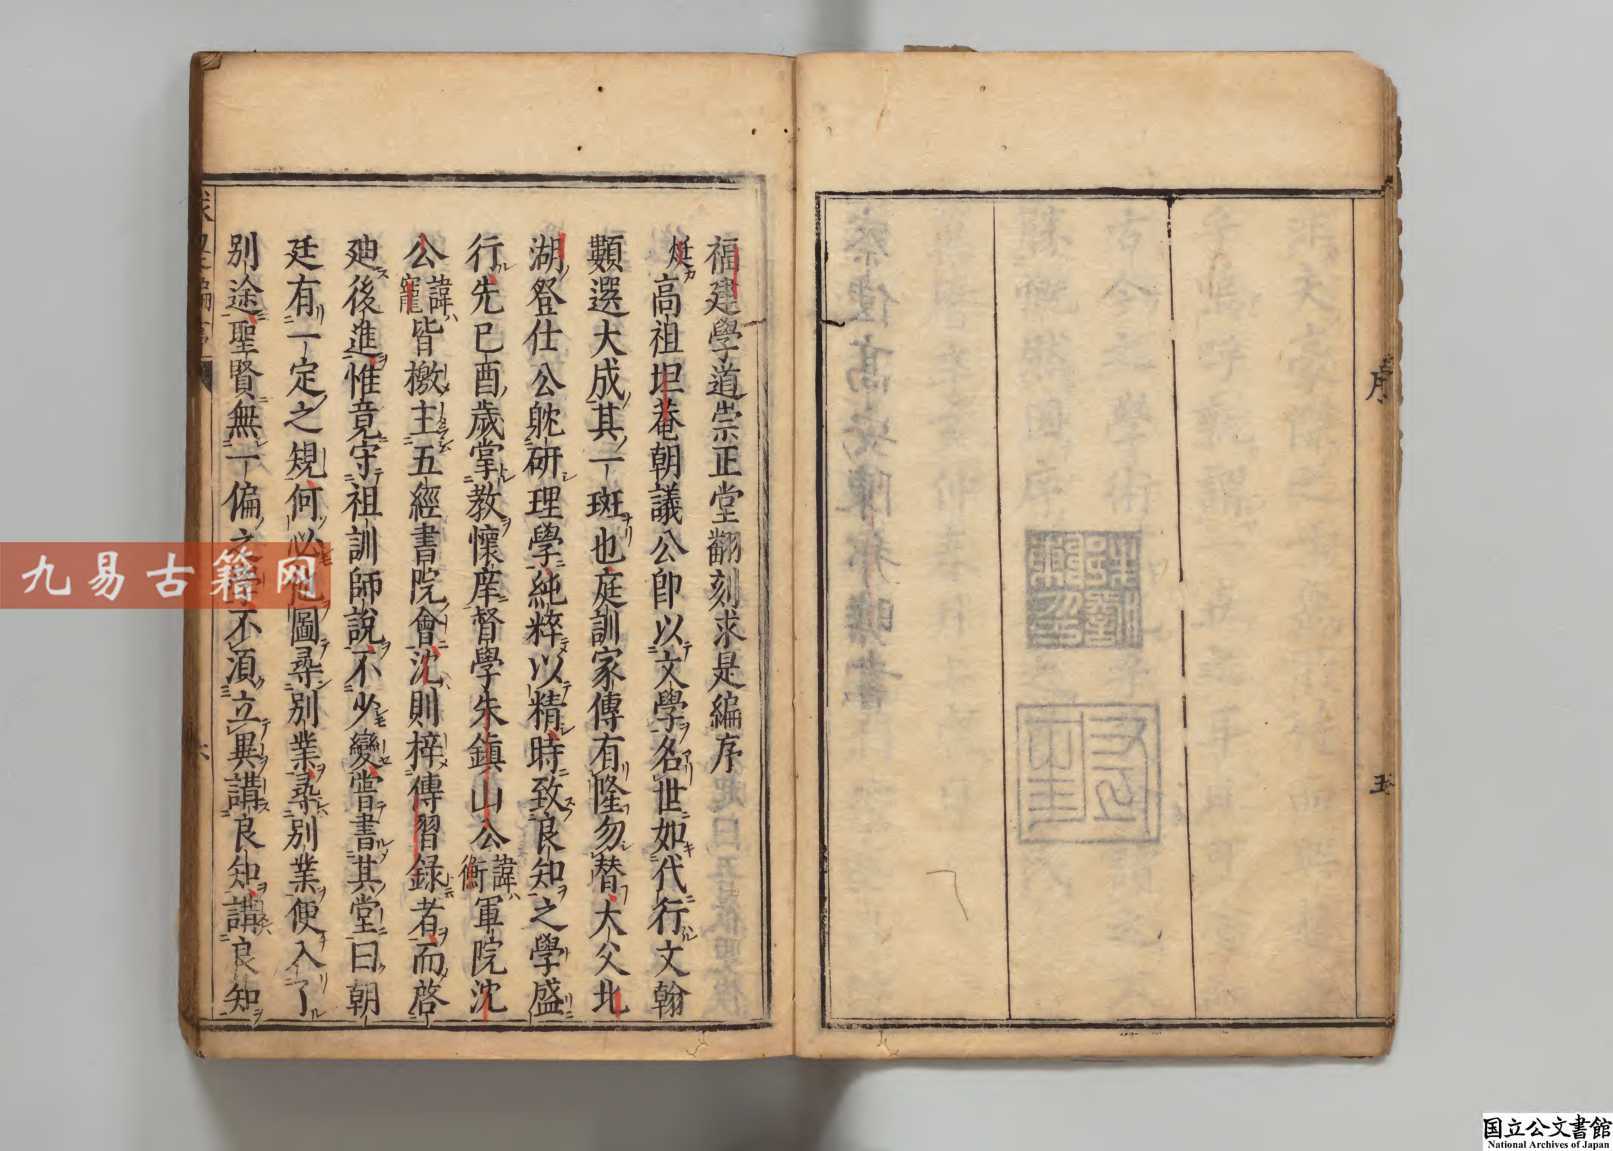 序
五
福建學道崇正堂翻刻求是編序
烶高祖坦菴朝議公卽以文學名世如代行文翰
顜選大成其一斑也庭訓家傳有隆勿替大父北
湖登仕公躭研理學純粹以精時致良知之學盛
行先巳酉歲掌教懷庠督學朱鎮山公諱衡軍院沈
公諱寵皆檄主五經書院會沈則梓傳習録者而啓
廸後進惟竟守祖訓師說不少變嘗書其堂曰朝
廷有一定之䂓何必圖尋別業尋別業便入了
別途聖賢無一偏之學不湏立異講良知講良知
六
九易古籍网
国立公文書館
National Archives of Japan